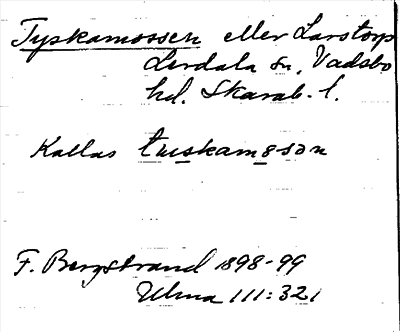 Tyskamossen eller Larstorp
Lerdala sn, Vadsbo
hd. Skarab. l.
Kallas tuskamosən
F. Bergstrand 1898-99
Ulma 111:321